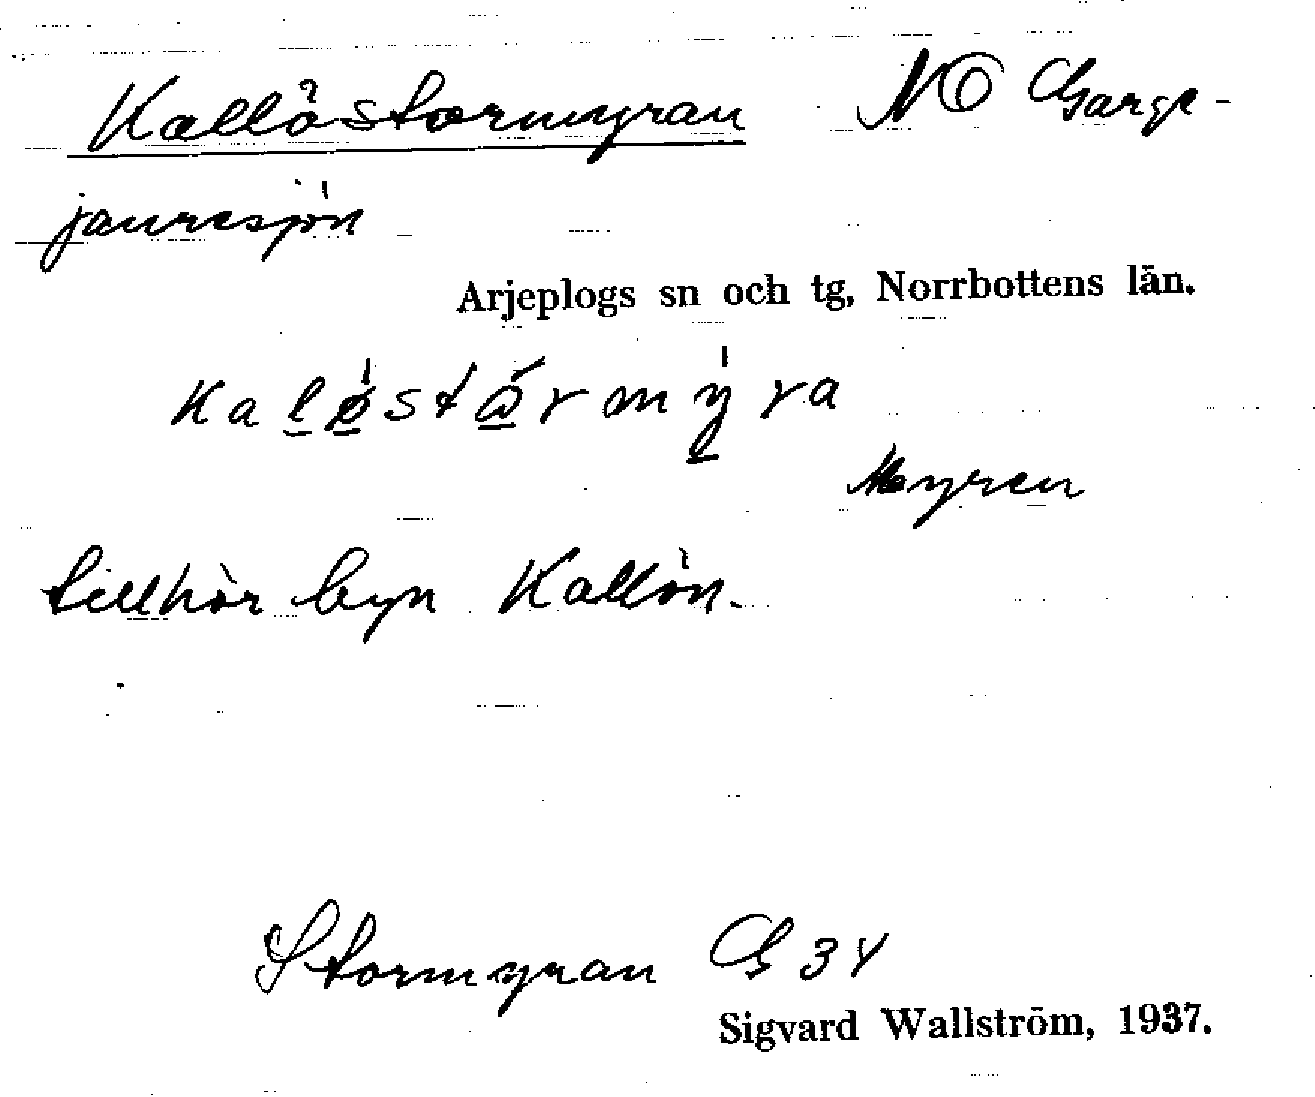 Kallöstormyran NO Garge-
jauresjön
Arjeplogs sn och tg, Norrbottens län.
Myren
tillhör byn Kallön.
Stormyran G 34
Sigvard Wallström, 1937.